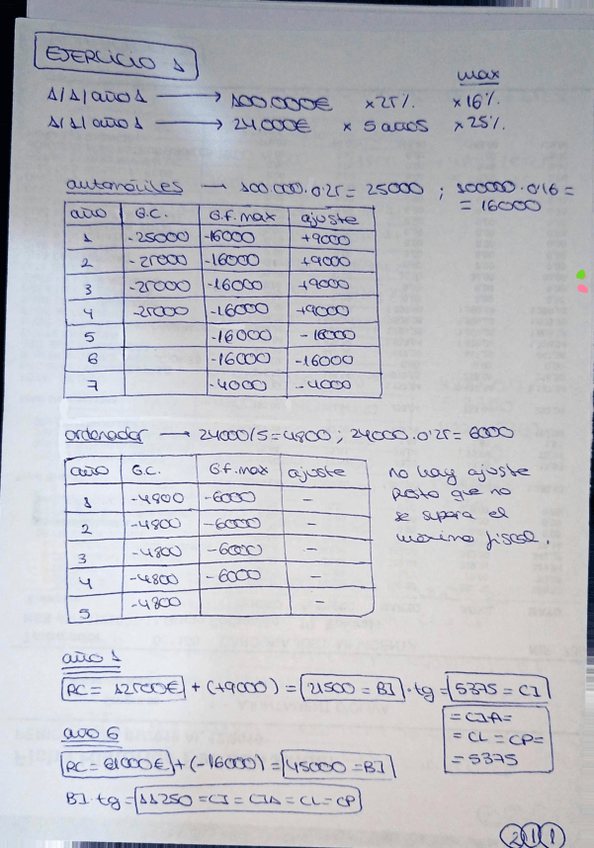 EJERCICIO 1
max
1/1/año 1 → 100.000€ ×25% ×16%.
1/1/año 1 → 24.000€ × 5 años ×25%.
automóviles → 100.000·0'25 = 25000 ; 100000·0'16 =
= 16000
año G.C. G.f.max ajuste
1 -25000 -16000 +9000
2 -25000 -16000 +9000
3 -25000 -16000 +9000
4 -25000 -16000 +9000
5 -16000 -16000
6 -16000 -16000
7 -4000 -4000
ordenador → 24000/5=4800 ; 24000·0'25= 6000
año G.C. G.f.max ajuste
1 -4800 -6000 -
2 -4800 -6000 -
3 -4800 -6000 -
4 -4800 -6000 -
5 -4800
no hay ajuste
puesto que no
se supera el
máximo fiscal.
año 1
RC= 12500€ + (+9000) = 21500 = BI · tg = 5375 = CI
= CIA=
= CL = CP=
= 5375
año 6
RC= 61000€ + (-16000) = 45000 = BI
BI · tg = 11250 = CI = CIA = CL = CP
211